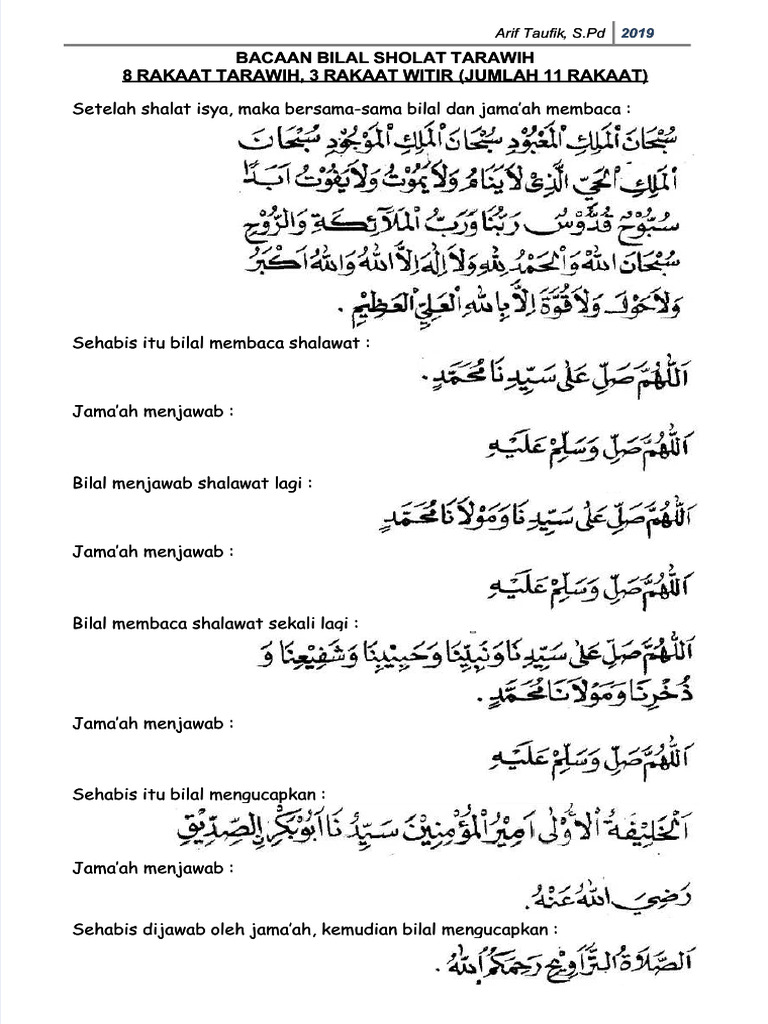 Arif Taufik, S.Pd 2019
BACAAN BILAL SHOLAT TARAWIH
8 RAKAAT TARAWIH, 3 RAKAAT WITIR (JUMLAH 11 RAKAAT)
Setelah shalat isya, maka bersama-sama bilal dan jama’ah membaca :
سُبْحَانَ الْمَلِكِ الْمَعْبُوْدِ سُبْحَانَ الْمَلِكِ الْمَوْجُوْدِ سُبْحَانَ
الْمَلِكِ الْحَيِّ الَّذِيْ لاَ يَنَامُ وَلاَ يَمُوْتُ وَلاَ يَفُوْتُ اَبَدًا
سُبُّوْحٌ قُدُّوْسٌ رَبُّنَا وَرَبُّ الْمَلَآئِكَةِ وَالرُّوْحِ
سُبْحَانَ اللهِ وَالْحَمْدُ لِلّٰهِ وَلاَ اِلٰهَ اِلاَّ اللهُ وَاللهُ اَكْبَرُ
وَلاَ حَوْلَ وَلاَ قُوَّةَ اِلاَّ بِاللهِ الْعَلِيِّ الْعَظِيْمِ .
Sehabis itu bilal membaca shalawat :
اَللّٰهُمَّ صَلِّ عَلٰى سَيِّدِنَا مُحَمَّدٍ .
Jama’ah menjawab :
اَللّٰهُمَّ صَلِّ وَسَلِّمْ عَلَيْهِ
Bilal menjawab shalawat lagi :
اَللّٰهُمَّ صَلِّ عَلٰى سَيِّدِنَا وَمَوْلاَنَا مُحَمَّدٍ
Jama’ah menjawab :
اَللّٰهُمَّ صَلِّ وَسَلِّمْ عَلَيْهِ
Bilal membaca shalawat sekali lagi :
اَللّٰهُمَّ صَلِّ عَلٰى سَيِّدِنَا وَنَبِيِّنَا وَحَبِيْبِنَا وَشَفِيْعِنَا وَ
ذُخْرِنَا وَمَوْلاَنَا مُحَمَّدٍ .
Jama’ah menjawab :
اَللّٰهُمَّ صَلِّ وَسَلِّمْ عَلَيْهِ
Sehabis itu bilal mengucapkan :
اَلْخَلِيْفَةُ الْاُوْلٰى اَمِيْرُ الْمُؤْمِنِيْنَ سَيِّدُنَا اَبُوْبَكْرِ الصِّدِّيْقِ
Jama’ah menjawab :
رَضِيَ اللهُ عَنْهُ .
Sehabis dijawab oleh jama’ah, kemudian bilal mengucapkan :
اَلصَّلاَةُ التَّرَاوِيْحِ رَحِمَكُمُ اللهُ .